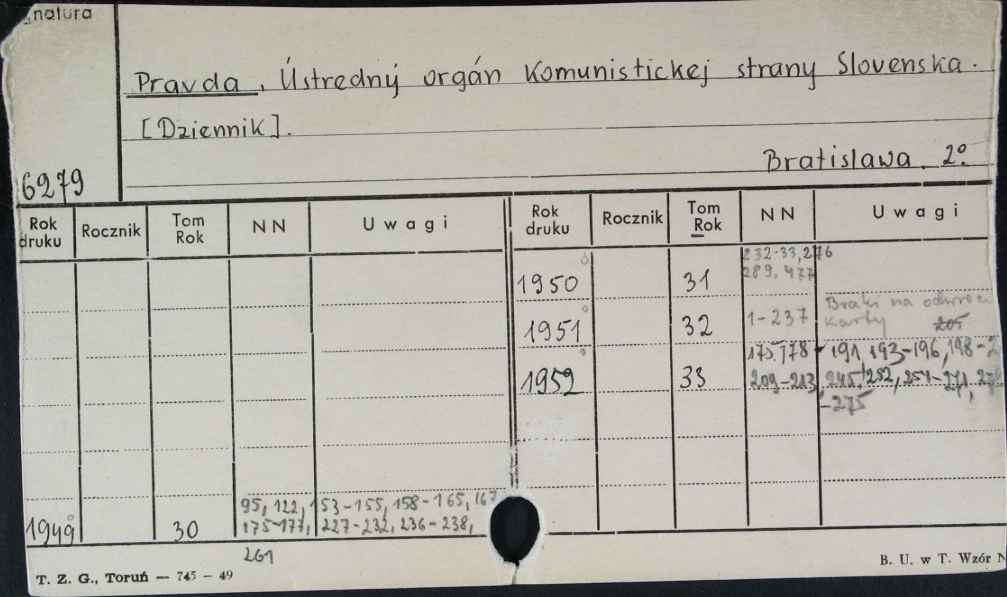 gnatura
Pravda, Ústredný orgán Komunistickej strany Slovenska.
[Dziennik].
Bratislawa. 2°
6279
Rok druku Rocznik Tom Rok NN Uwagi Rok druku Rocznik Tom Rok NN Uwagi
232-33, 276
1950 31 289, 477
Braki na odwrocie
1951 32 1-237 karty 205
175, 178 - 191, 193-196, 198-2
1952 33 209-213, 245, 252, 254-271, 27
-275
95, 122, 153-155, 158-165, 167
1949 30 175-177, 227-232, 236-238,
261
T. Z. G., Toruń — 745 - 49
B. U. w T. Wzór N